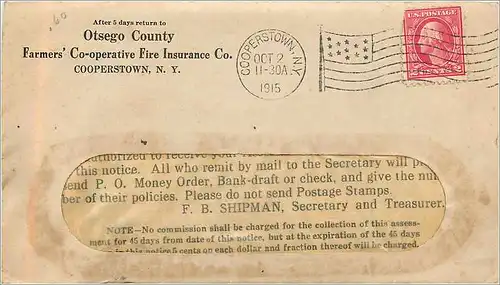 60
After 5 days return to
Otsego County
Farmers' Co-operative Fire Insurance Co.
COOPERSTOWN, N. Y.
COOPERSTOWN, N.Y.
OCT 2
11-30A
1915
U.S. POSTAGE
2 CENTS 2
authorized to receive your
this notice. All who remit by mail to the Secretary will
end P. O. Money Order, Bank-draft or check, and give the
ber of their policies. Please do not send Postage Stamps.
F. B. SHIPMAN, Secretary and Treasurer.
NOTE—No commission shall be charged for the collection of this assess-
ment for 45 days from date of this notice, but at the expiration of the 45 days
in this notice 5 cents on each dollar and fraction thereof will be charged.